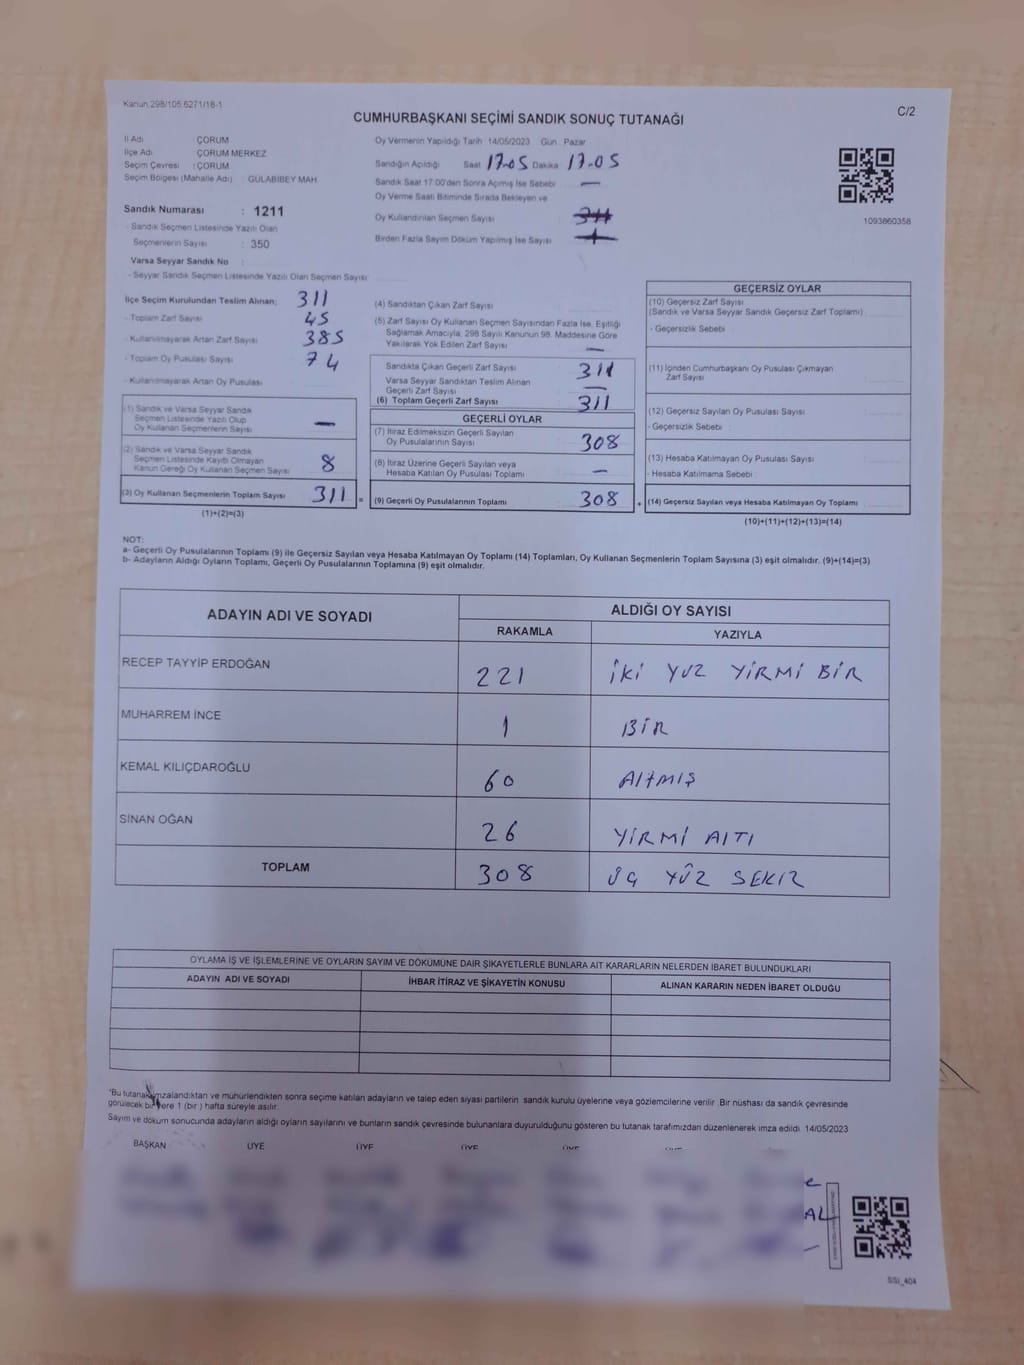 Kanun 298/105 6271/18-1
C/2
CUMHURBAŞKANI SEÇİMİ SANDIK SONUÇ TUTANAĞI
İl Adı ÇORUM
İlçe Adı ÇORUM MERKEZ
Seçim Çevresi : ÇORUM
Seçim Bölgesi (Mahalle Adı) : GÜLABİBEY MAH
Sandık Numarası : 1211
- Sandık Seçmen Listesinde Yazılı Olan
Seçmenlerin Sayısı : 350
Varsa Seyyar Sandık No :
- Seyyar Sandık Seçmen Listesinde Yazılı Olan Seçmen Sayısı
Oy Vermenin Yapıldığı Tarih 14/05/2023 Gün Pazar
Sandığın Açıldığı Saat 17.05 Dakika 17.05
Sandık Saat 17:00'den Sonra Açımış İse Sebebi —
Oy Verme Saati Bitiminde Sırada Bekleyen ve
Oy Kullandırılan Seçmen Sayısı 311
Birden Fazla Sayım Döküm Yapılmış İse Sayısı
1093860358
İlçe Seçim Kurulundan Teslim Alınan; 311
- Toplam Zarf Sayısı 45
- Kullanılmayarak Artan Zarf Sayısı 385
- Toplam Oy Pusulası Sayısı 74
- Kullanılmayarak Artan Oy Pusulası
(1) Sandık ve Varsa Seyyar Sandık
Seçmen Listesinde Yazılı Olup
Oy Kullanan Seçmenlerin Sayısı —
(2) Sandık ve Varsa Seyyar Sandık
Seçmen Listesinde Kayıtlı Olmayan
Kanun Gereği Oy Kullanan Seçmen Sayısı 8
(3) Oy Kullanan Seçmenlerin Toplam Sayısı 311 =
(1)+(2)=(3)
(4) Sandıktan Çıkan Zarf Sayısı
(5) Zarf Sayısı Oy Kullanan Seçmen Sayısından Fazla İse, Eşitliği
Sağlamak Amacıyla; 298 Sayılı Kanunun 98. Maddesine Göre
Yakılarak Yok Edilen Zarf Sayısı —
Sandıkta Çıkan Geçerli Zarf Sayısı 311
Varsa Seyyar Sandıktan Teslim Alınan
Geçerli Zarf Sayısı —
(6) Toplam Geçerli Zarf Sayısı 311
GEÇERLİ OYLAR
(7) İtiraz Edilmeksizin Geçerli Sayılan
Oy Pusulalarının Sayısı 308
(8) İtiraz Üzerine Geçerli Sayılan veya
Hesaba Katılan Oy Pusulası Toplamı —
(9) Geçerli Oy Pusulalarının Toplamı 308 +
GEÇERSİZ OYLAR
(10) Geçersiz Zarf Sayısı
(Sandık ve Varsa Seyyar Sandık Geçersiz Zarf Toplamı)
- Geçersizlik Sebebi
(11) İçinden Cumhurbaşkanı Oy Pusulası Çıkmayan
Zarf Sayısı
(12) Geçersiz Sayılan Oy Pusulası Sayısı
- Geçersizlik Sebebi :
(13) Hesaba Katılmayan Oy Pusulası Sayısı
- Hesaba Katılmama Sebebi
(14) Geçersiz Sayılan veya Hesaba Katılmayan Oy Toplamı
(10)+(11)+(12)+(13)=(14)
NOT:
a- Geçerli Oy Pusulalarının Toplamı (9) ile Geçersiz Sayılan veya Hesaba Katılmayan Oy Toplamı (14) Toplamları, Oy Kullanan Seçmenlerin Toplam Sayısına (3) eşit olmalıdır. (9)+(14)=(3)
b- Adayların Aldığı Oyların Toplamı, Geçerli Oy Pusulalarının Toplamına (9) eşit olmalıdır.
ADAYIN ADI VE SOYADI ALDIĞI OY SAYISI
RAKAMLA YAZIYLA
RECEP TAYYİP ERDOĞAN 221 İKİ YUZ YİRMİ BİR
MUHARREM İNCE 1 BİR
KEMAL KILIÇDAROĞLU 60 AltMIŞ
SİNAN OĞAN 26 YİRMİ ALTI
TOPLAM 308 ÜÇ YÜZ SEKİZ
OYLAMA İŞ VE İŞLEMLERİNE VE OYLARIN SAYIM VE DÖKÜMÜNE DAİR ŞİKAYETLERLE BUNLARA AİT KARARLARIN NELERDEN İBARET BULUNDUKLARI
ADAYIN ADI VE SOYADI İHBAR İTİRAZ VE ŞİKAYETİN KONUSU ALINAN KARARIN NEDEN İBARET OLDUĞU
*Bu tutanak imzalandıktan ve mühürlendikten sonra seçime katılan adayların ve talep eden siyasi partilerin sandık kurulu üyelerine veya gözlemcilerine verilir. Bir nüshası da sandık çevresinde
görülecek bir yere 1 (bir ) hafta süreyle asılır.
Sayım ve döküm sonucunda adayların aldığı oyların sayılarını ve bunların sandık çevresinde bulunanlara duyurulduğunu gösteren bu tutanak tarafımızdan düzenlenerek imza edildi. 14/05/2023
BAŞKAN ÜYE ÜYE ÜYE ÜYE
AL
SSI_404